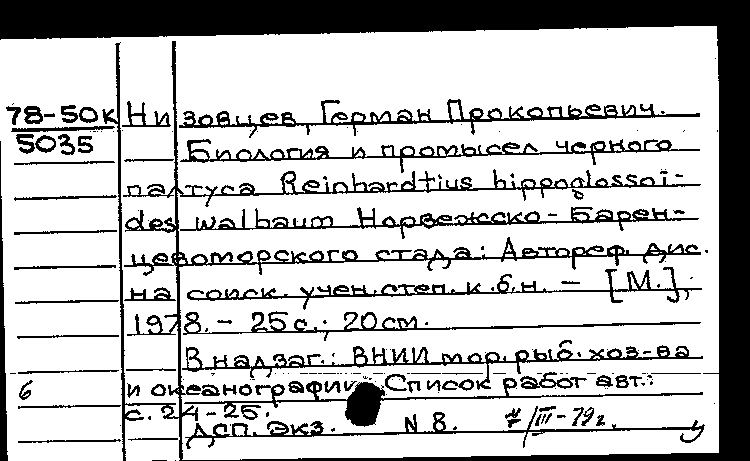 78-50к Низовцев, Герман Прокопьевич.
5035
Биология и промысел черного
палтуса Reinhardtius hippoglossoi-
des walbaum Норвежско-Барен-
цевоморского стада: Автореф. дис.
на соиск. учен. степ. к.б.н. – [М.],
1978. – 25 с.; 20 см.
В надзаг.: ВНИИ мор. рыб. хоз-ва
б и океанографии. Список работ авт.:
с. 24-25.
ДСП. Экз. N 8. 4/III-79г. У